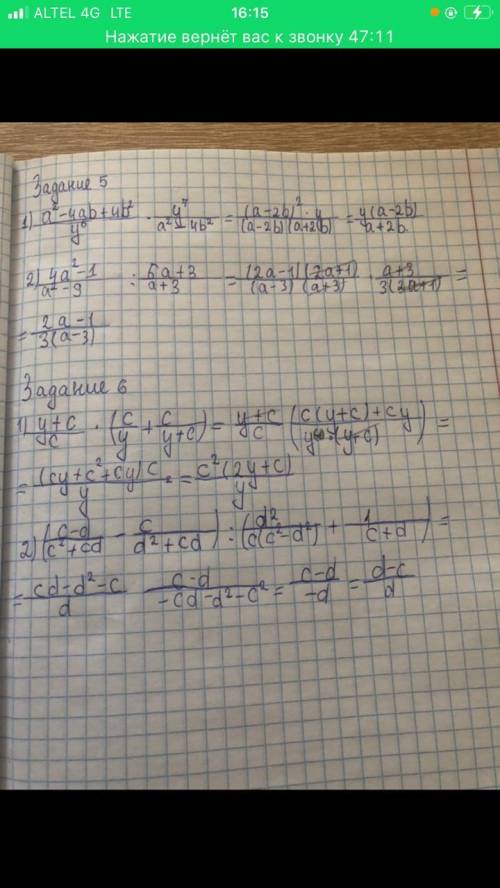 ALTEL 4G LTE 16:15
Нажатие вернёт вас к звонку 47:11
Задание 5
1) (a²-4ab+4b²)/y⁶ · y⁷/(a²-4b²) = ((a-2b)²·y)/((a-2b)(a+2b)) = y(a-2b)/(a+2b)
2) (4a²-1)/(a²-9) : (6a+3)/(a+3) = ((2a-1)(2a+1))/((a-3)(a+3)) · (a+3)/(3(2a+1)) =
= (2a-1)/(3(a-3))
Задание 6
1) (y+c)/c · (c/y + c/(y+c)) = (y+c)/c ((c(y+c)+cy)/(y(y+c))) =
= ((cy+c²+cy)c)/y = c²(2y+c)/y
2) ((c-d)/(c²+cd) - c/(d²+cd)) : (d²/(c(c²-d²)) + 1/(c+d)) =
= (cd-d²-c)/d (c-d)/(-cd-d²-c²) = (c-d)/(-d) = (d-c)/d